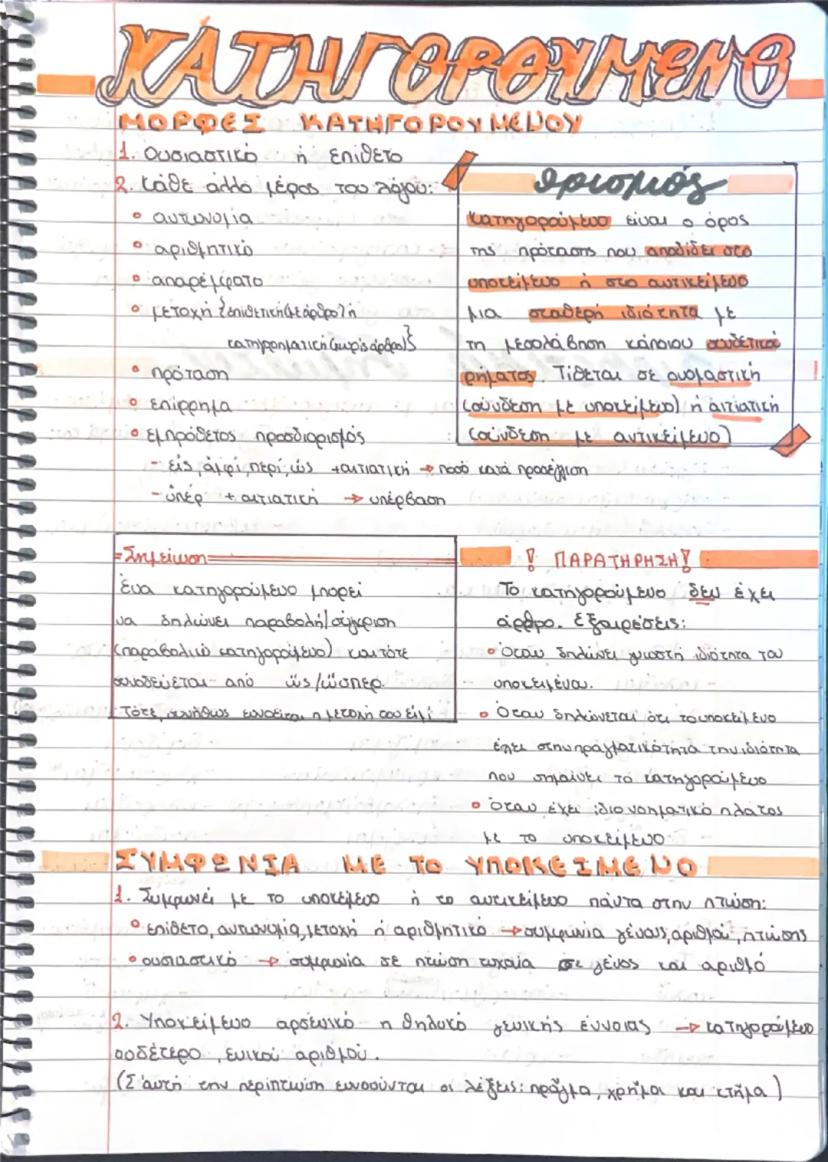 ΚΑΤΗΓΟΡΟΥΜΕΝΟ
ΜΟΡΦΕΣ ΚΑΤΗΓΟΡΟΥΜΕΝΟΥ
1. Ουσιαστικό ή επίθετο
2. Κάθε άλλο μέρος του λόγου:
• αντωνυμία
• αριθμητικό
• απαρέμφατο
• μετοχή {επιθετική (με άρθρο) ή
κατηγορηματική (χωρίς άρθρο)}
• πρόταση
• επίρρημα
• εμπρόθετος προσδιορισμός
- εἰς, ἀμφί, περί, ὡς + αιτιατική → ποσό κατά προσέγγιση
- ὑπέρ + αιτιατική → υπέρβαση
Ορισμός
Κατηγορούμενο είναι ο όρος
της πρότασης που αποδίδει στο
υποκείμενο ή στο αντικείμενο
μια σταθερή ιδιότητα με
τη μεσολάβηση κάποιου συνδετικού
ρήματος. Τίθεται σε ονομαστική
(σύνδεση με υποκείμενο) ή αιτιατική
(σύνδεση με αντικείμενο)
Σημείωση
Ένα κατηγορούμενο μπορεί
να δηλώνει παραβολή/σύγκριση
(παραβολικό κατηγορούμενο) και τότε
συνοδεύεται από ὡς/ὥσπερ.
Τότε, συνήθως εννοείται η μετοχή του εἰμί
! ΠΑΡΑΤΗΡΗΣΗ!
Το κατηγορούμενο δεν έχει
άρθρο. Εξαιρέσεις:
• Όταν δηλώνει γνωστή ιδιότητα του
υποκειμένου.
• Όταν δηλώνεται ότι το υποκείμενο
έχει στην πραγματικότητα την ιδιότητα
που σημαίνει το κατηγορούμενο
• Όταν έχει ίδιο νοηματικό πλάτος
με το υποκείμενο
ΣΥΜΦΩΝΙΑ ΜΕ ΤΟ ΥΠΟΚΕΙΜΕΝΟ
1. Συμφωνεί με το υποκείμενο ή το αντικείμενο πάντα στην πτώση:
• επίθετο, αντωνυμία, μετοχή ή αριθμητικό → συμφωνία γένους, αριθμού, πτώσης
• ουσιαστικό → συμφωνία σε πτώση τυχαία σε γένος και αριθμό
2. Υποκείμενο αρσενικό η θηλυκό γενικής έννοιας → κατηγορούμενο
ουδέτερο, ενικού αριθμού.
(Σ'αυτή την περίπτωση εννοούνται οι λέξεις: πρᾶγμα, χρῆμα και κτῆμα)